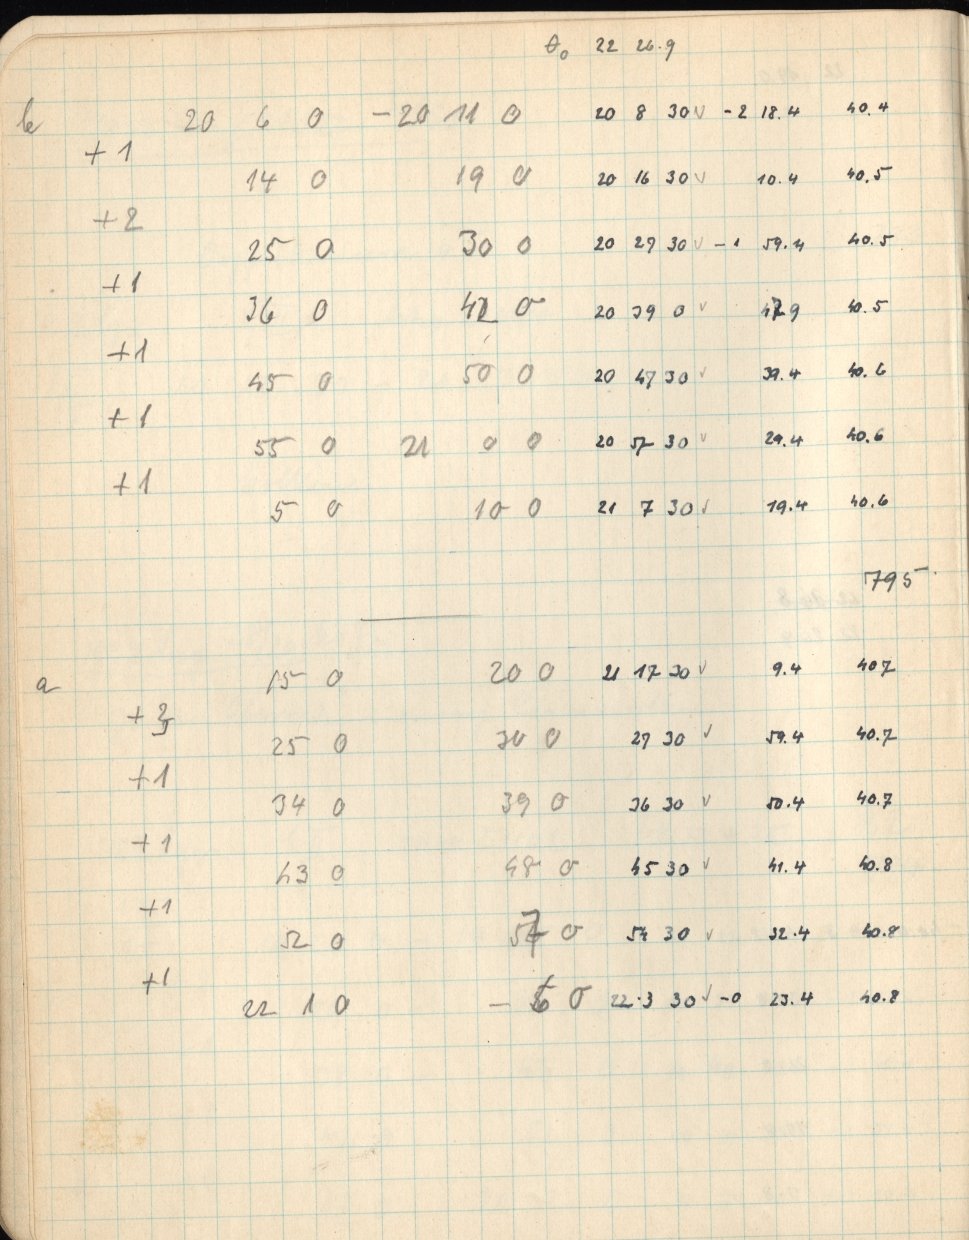 θ₀ 22 26.9
b 20 6 0 -20 11 0 20 8 30 √ -2 18.4 40.4
+1
14 0 19 0 20 16 30 √ 10.4 40.5
+2
25 0 30 0 20 27 30 √ -1 59.4 40.5
+1
36 0 42 0 20 39 0 √ 47.9 40.5
+1
45 0 50 0 20 47 30 √ 39.4 40.6
+1
55 0 21 0 0 20 57 30 √ 29.4 40.6
+1
5 0 10 0 21 7 30 √ 19.4 40.6
795
a 15 0 20 0 21 17 30 √ 9.4 40.7
+
25 0 30 0 27 30 √ 59.4 40.7
+1
34 0 39 0 36 30 √ 50.4 40.7
+1
43 0 48 0 45 30 √ 41.4 40.8
+1
52 0 57 0 54 30 √ 32.4 40.8
+1
22 1 0 - 6 0 22.3 30 √ -0 23.4 40.8